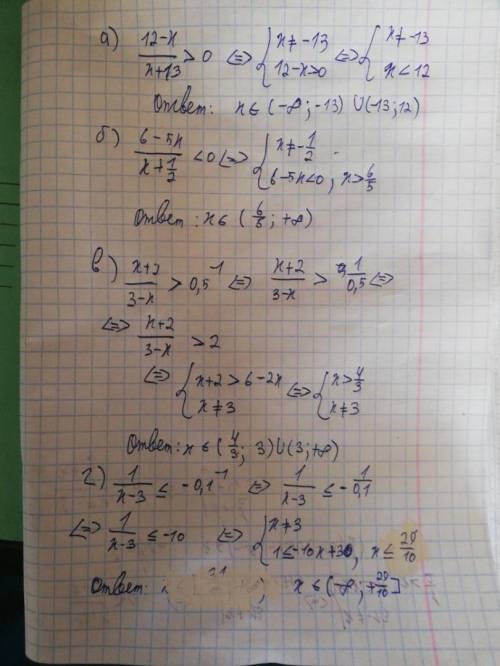 а) (12-x)/(x+13) > 0 ⇔ { x≠-13; 12-x>0 ⇔ { x≠-13; x<12
Ответ: x∈(-∞;-13)∪(-13;12)
б) (6-5x)/(x+1/2) <0 ⇔ { x≠-1/2; 6-5x<0, x>6/5
Ответ: x∈(6/5; +∞)
в) (x+2)/(3-x) > 0,5⁻¹ ⇔ (x+2)/(3-x) > 1/0,5 ⇔
⇔ (x+2)/(3-x) > 2
⇔ { x+2>6-2x; x≠3 ⇔ { x>4/3; x≠3
Ответ: x∈(4/3; 3)∪(3;+∞)
г) 1/(x-3) ≤ -0,1⁻¹ ⇔ 1/(x-3) ≤ -1/0,1
⇔ 1/(x-3) ≤ -10 ⇔ { x≠3; 1≤-10x+30, x≤29/10
Ответ: x∈(-∞;+29/10]